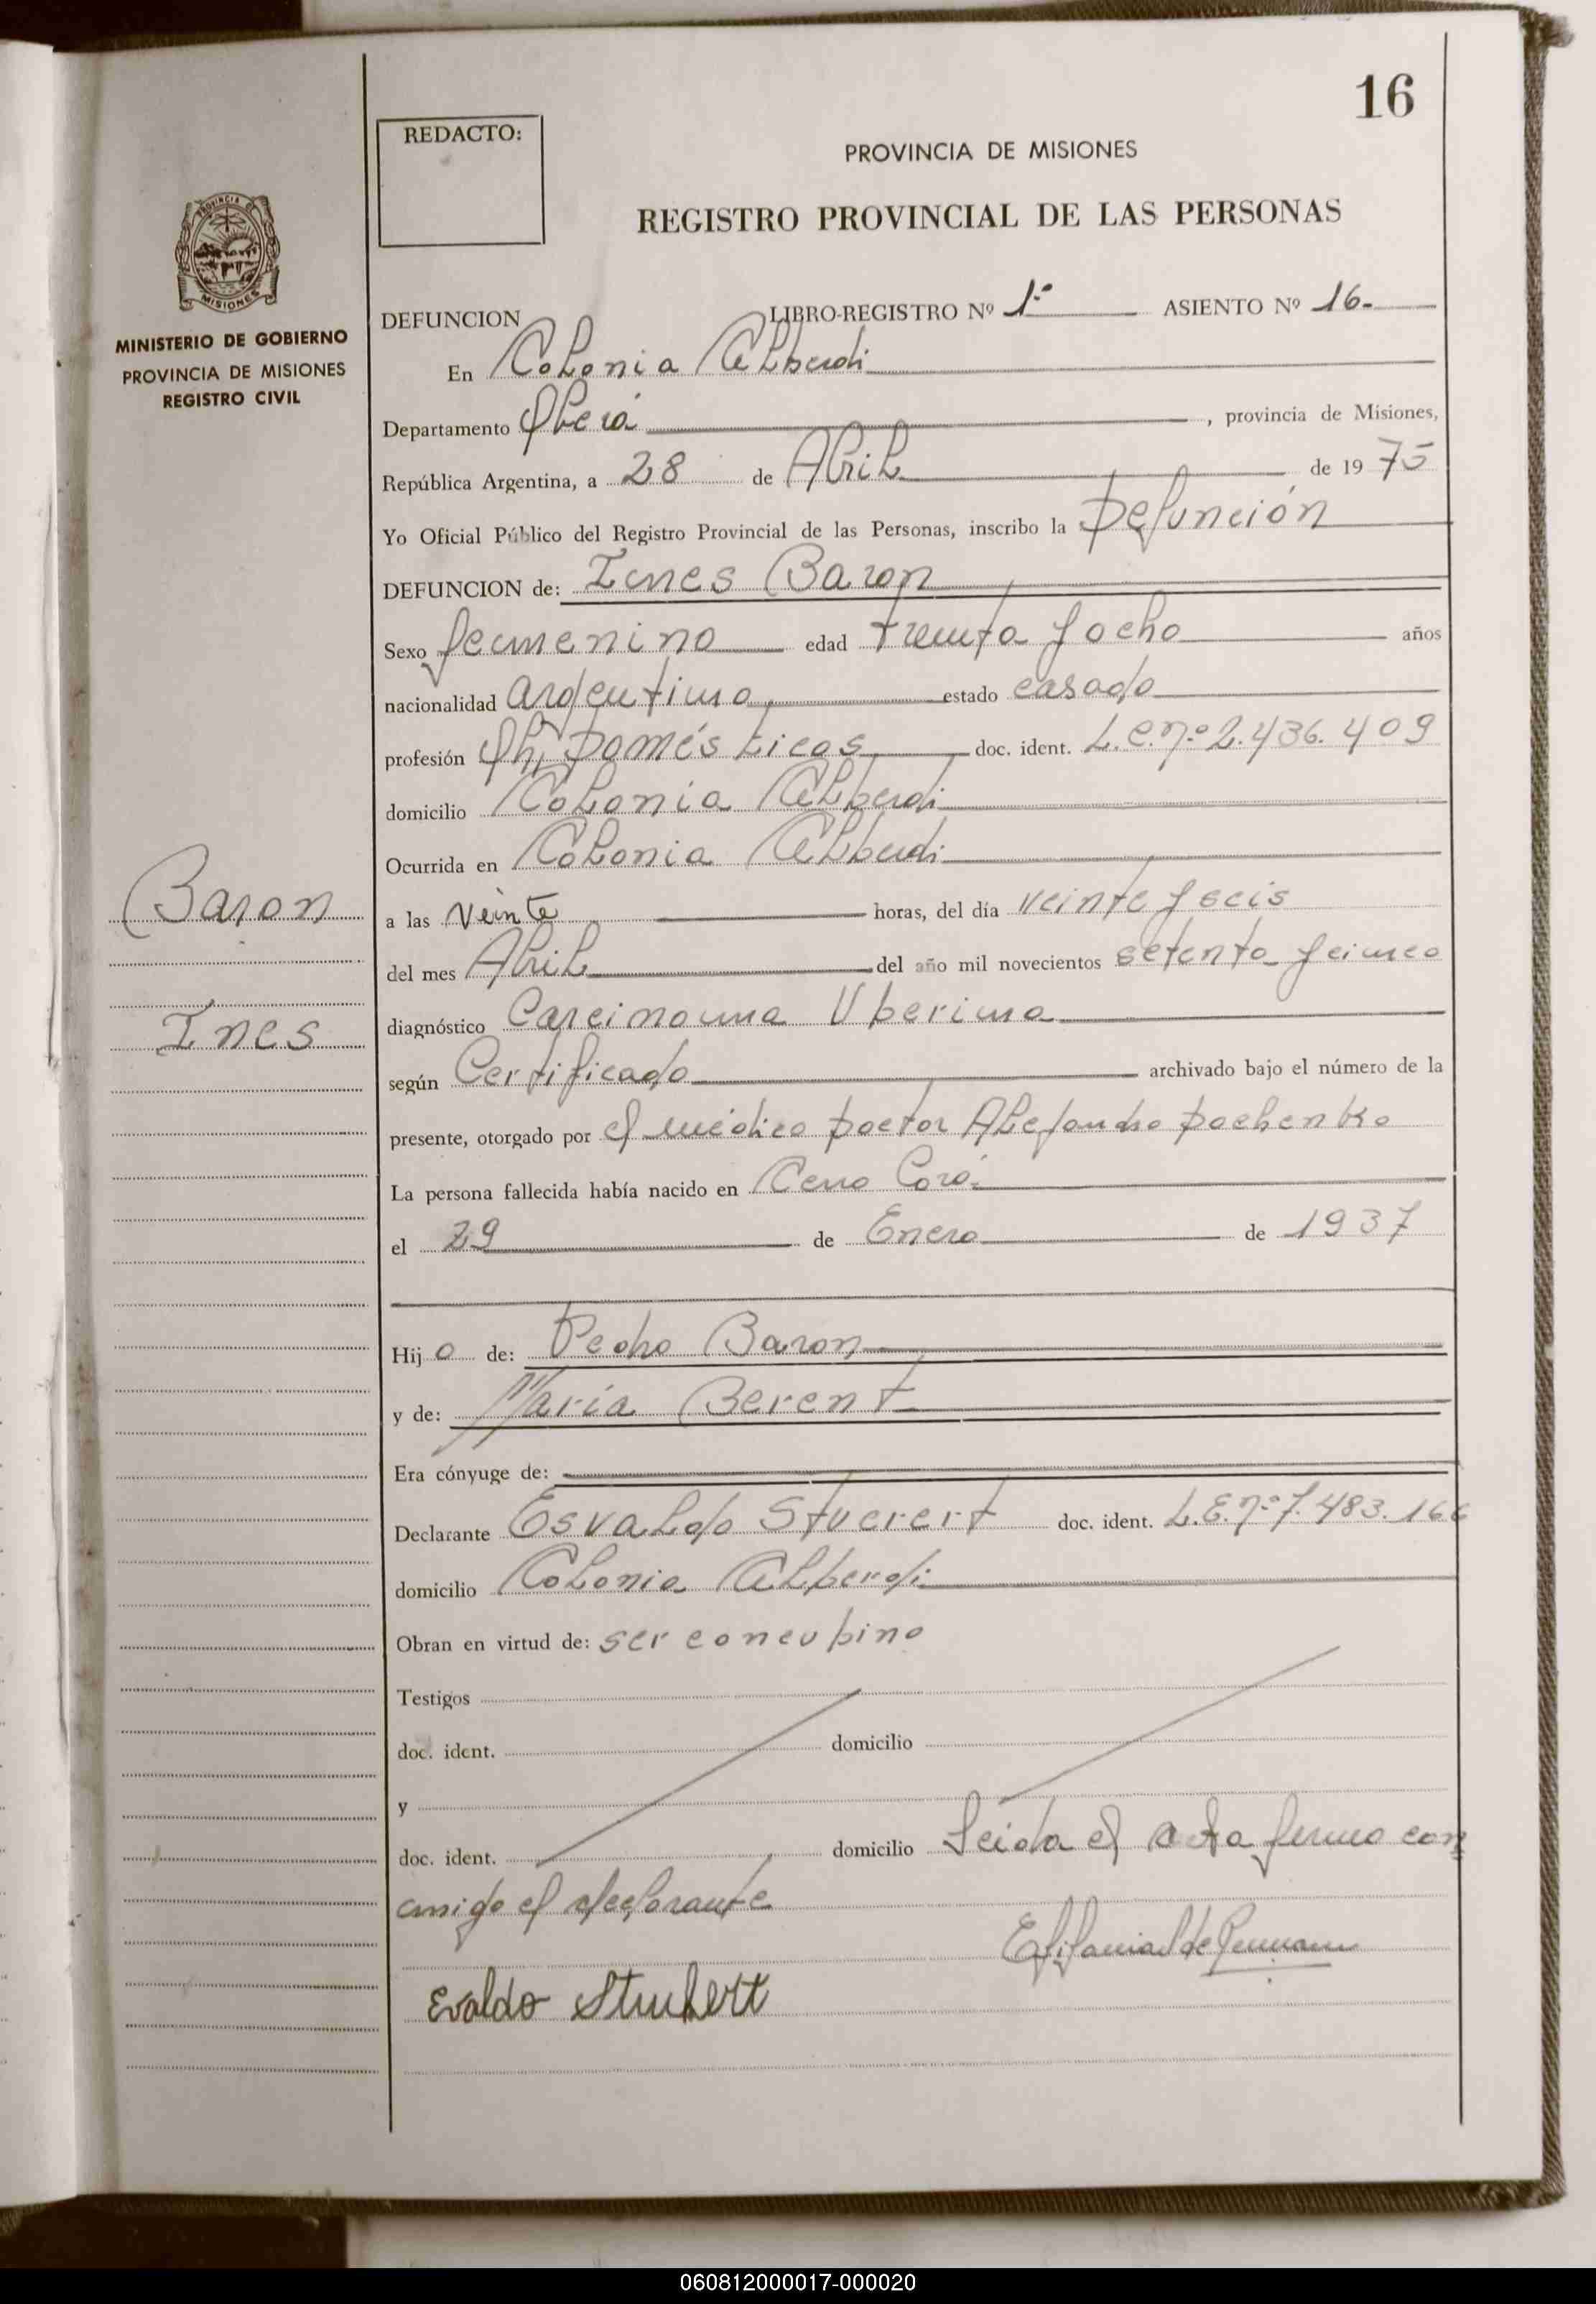 16
REDACTO:
PROVINCIA DE MISIONES
REGISTRO PROVINCIAL DE LAS PERSONAS
PROVINCIA DE
MISIONES
MINISTERIO DE GOBIERNO
PROVINCIA DE MISIONES
REGISTRO CIVIL
DEFUNCION LIBRO-REGISTRO Nº 1º ASIENTO Nº 16.
En Colonia Alberdi
Departamento Oberá, provincia de Misiones,
República Argentina, a 28 de Abril de 19 75
Yo Oficial Público del Registro Provincial de las Personas, inscribo la Defunción
DEFUNCION de: Ines Baron
Sexo femenino edad treinta y ocho años
nacionalidad argentina estado casada
profesión Domésticos doc. ident. L.C.nº 2.436.409
domicilio Colonia Alberdi
Ocurrida en Colonia Alberdi
Baron
a las veinte horas, del día veinte y seis
del mes Abril del año mil novecientos setenta y cinco
Ines
diagnóstico Carcinoma Uberina
según Certificado archivado bajo el número de la
presente, otorgado por el médico Doctor Alejandro Dochenko
La persona fallecida había nacido en Cerro Corá
el 29 de Enero de 1937
Hij a de: Pedro Baron
y de: Maria Berent
Era cónyuge de:
Declarante Esvaldo Stuerert doc. ident. L.E.nº 7.483.166
domicilio Colonia Alberdi
Obran en virtud de: ser concubino
Testigos
doc. ident. domicilio
y
doc. ident. domicilio Leida el acta firma con
migo el declarante
Evaldo Struhert
060812000017-000020